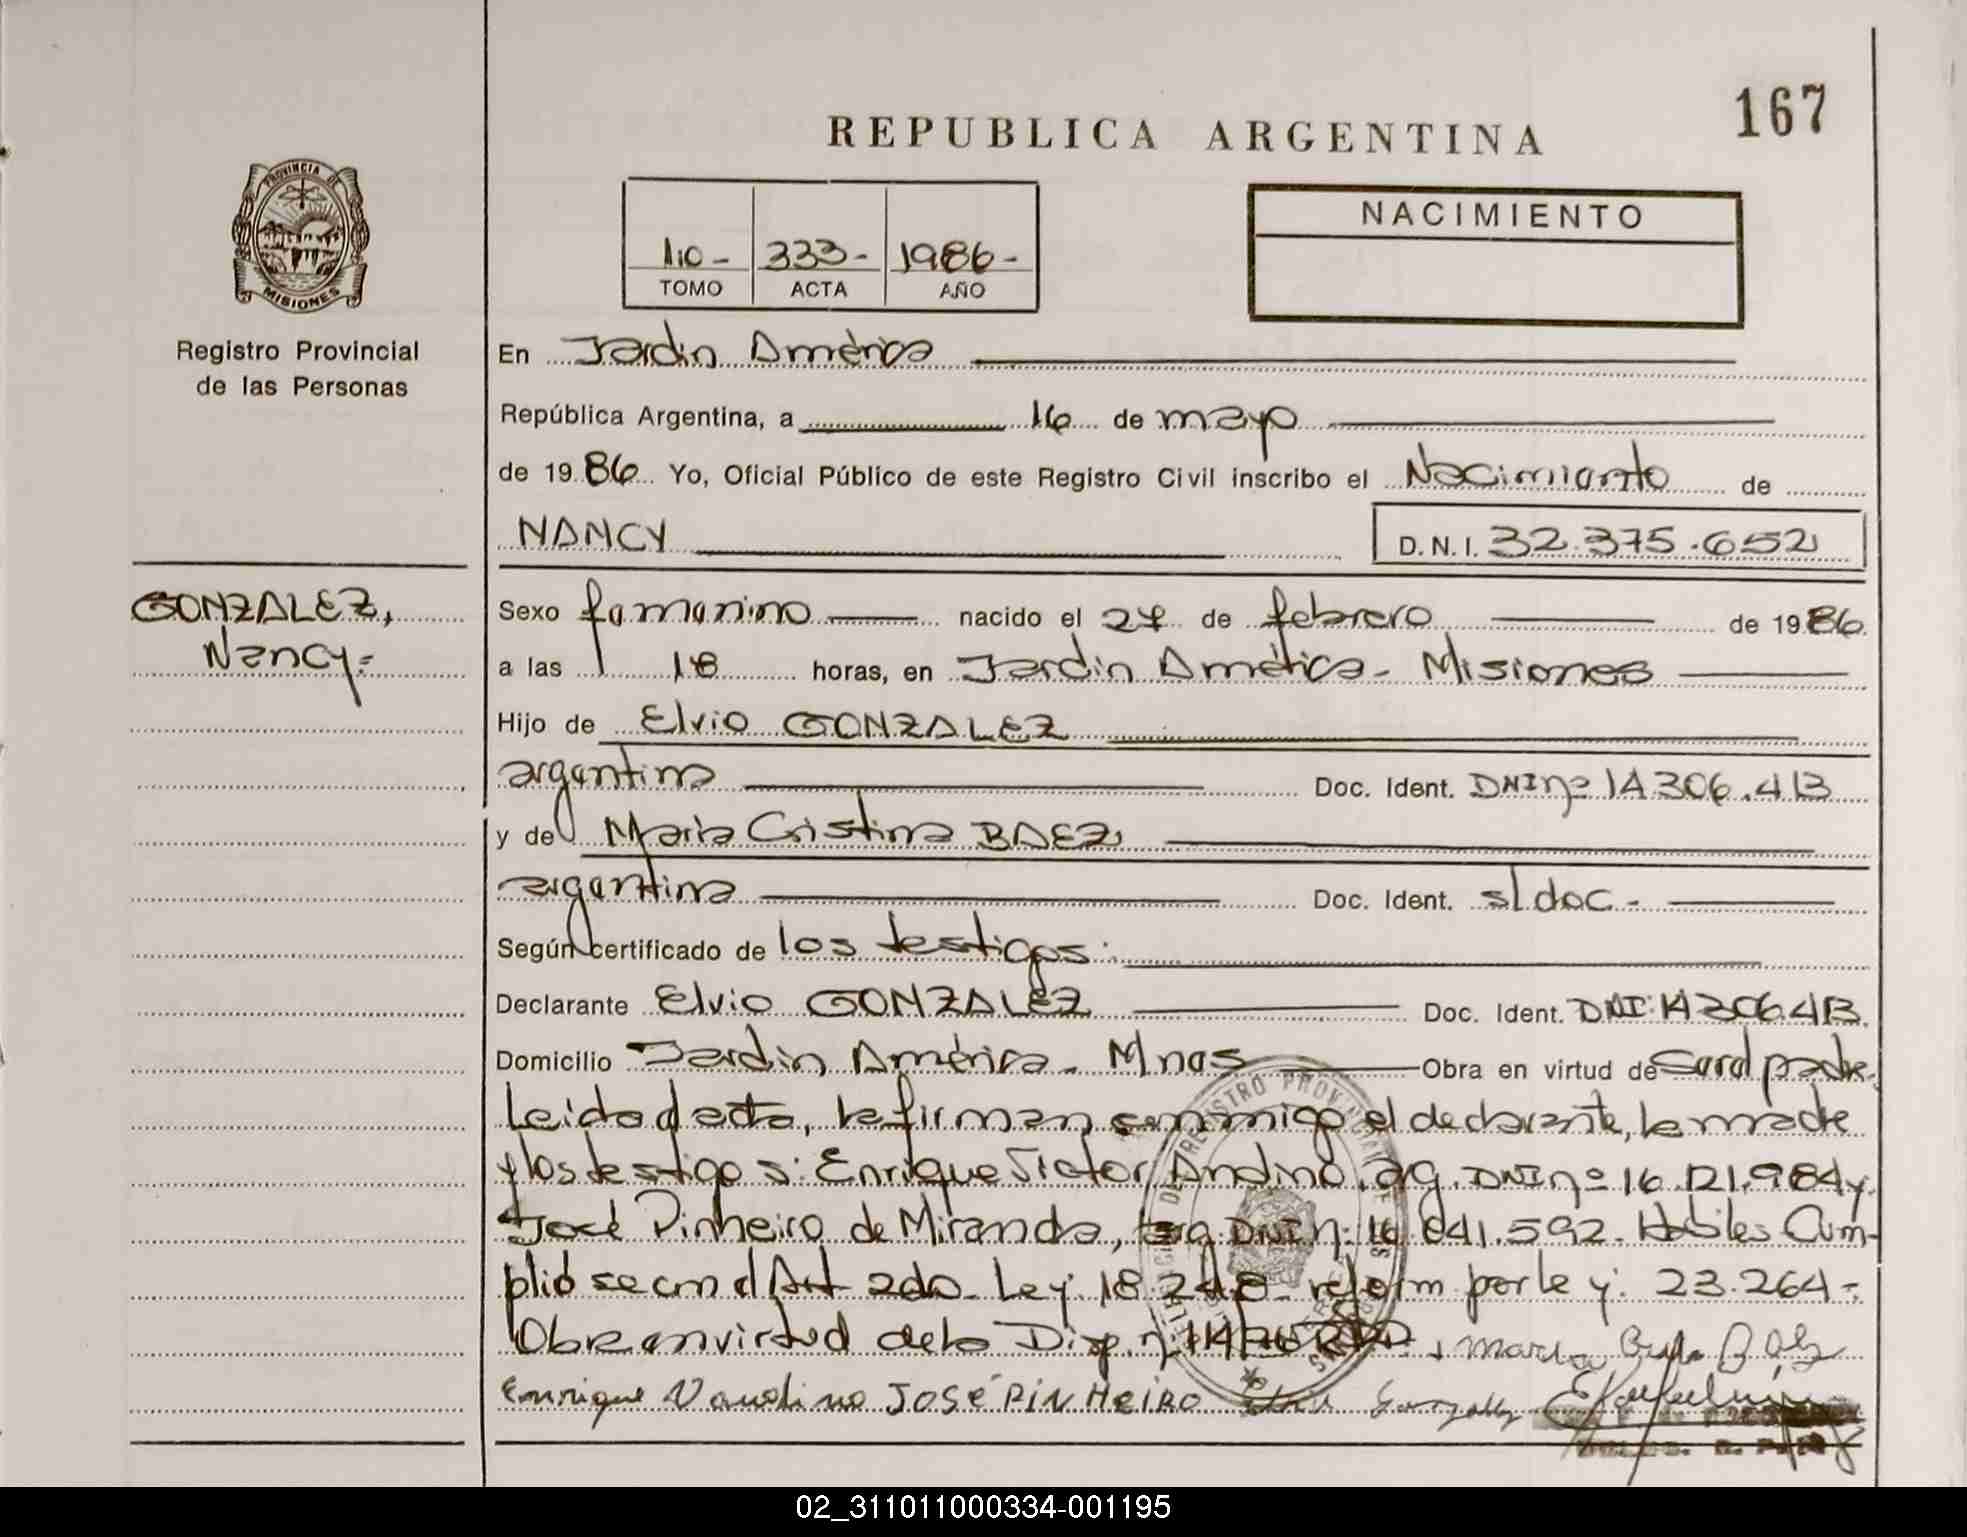 167
REPUBLICA ARGENTINA
PROVINCIA DE
MISIONES
Registro Provincial
de las Personas
1º - 333 - 1986 -
TOMO ACTA AÑO
NACIMIENTO
En Jardín América
República Argentina, a 16 de mayo
de 1986 Yo, Oficial Público de este Registro Civil inscribo el Nacimiento de
NANCY D.N.I. 32.375.652
GONZALEZ,
Nancy.=
Sexo femenino nacido el 24 de febrero de 1986
a las 18 horas, en Jardín América - Misiones
Hijo de Elvio GONZALEZ
argentina Doc. Ident. DNI nº 14306.413
y de María Cristina BAEZ
argentina Doc. Ident. s/doc -
Según certificado de los testigos:
Declarante Elvio GONZALEZ Doc. Ident. DNI: 14306413
Domicilio Jardín América - Mnes Obra en virtud de ser el padre.
Leída el acta, la firman conmigo el declarante, la madre
y los testigos: Enrique Victor Andino, arg. DNI nº 16.121.984 y
José Pinheiro de Miranda, arg DNI n: 641.592. Hábiles Cum-
plióse con el Art 2do Ley 18.248 reform por ley: 23.264 -
Obra en virtud de la Disp. n
Enrique JOSÉ PINHEIRO
02_311011000334-001195